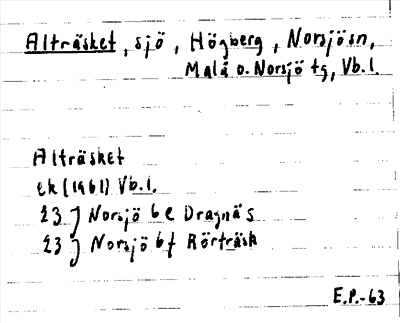 Alträsket, sjö, Högberg, Norsjösn,
Malå o. Norsjö tg, Vb.l.
Alträsket
ek (1961) Vb.l.
23J Norsjö 6e Dragnäs
23J Norsjö 6f Rörträsk
E.P.-63